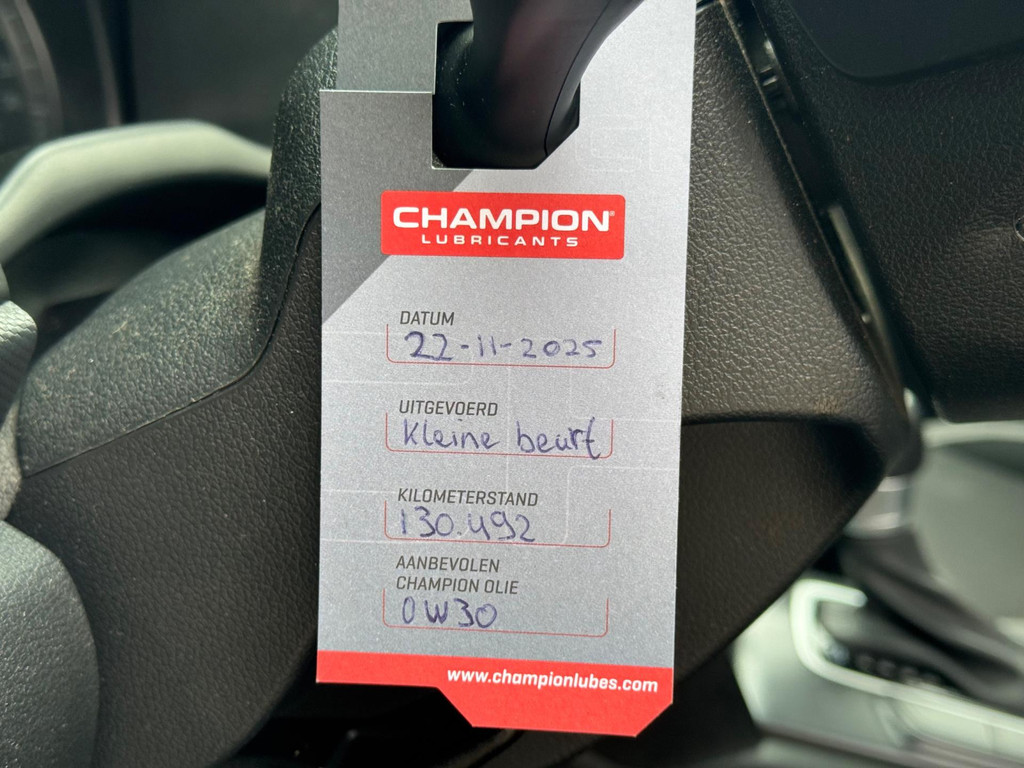 CHAMPION
LUBRICANTS
DATUM
22-11-2025
UITGEVOERD
Kleine beurt
KILOMETERSTAND
130.492
AANBEVOLEN
CHAMPION OLIE
0W30
www.championlubes.com